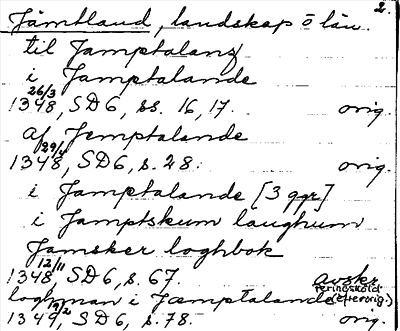 2.
Jämtland, landskap o län.
til Jamptalanz
i Jamptalande
26/3
1348, SD6, ss. 16, 17. orig.
af Jemptalande
29/4
1348, SD6, s. 28. orig.
i Jamptalande [3 ggr]
i Jamptskum laughum
Jamsker loghbok
12/11
1348, SD6, s. 67. Avskr.
Peringskiöld
loghman i Jæmptalande (efter orig.)
1349, SD6, s. 78. orig.